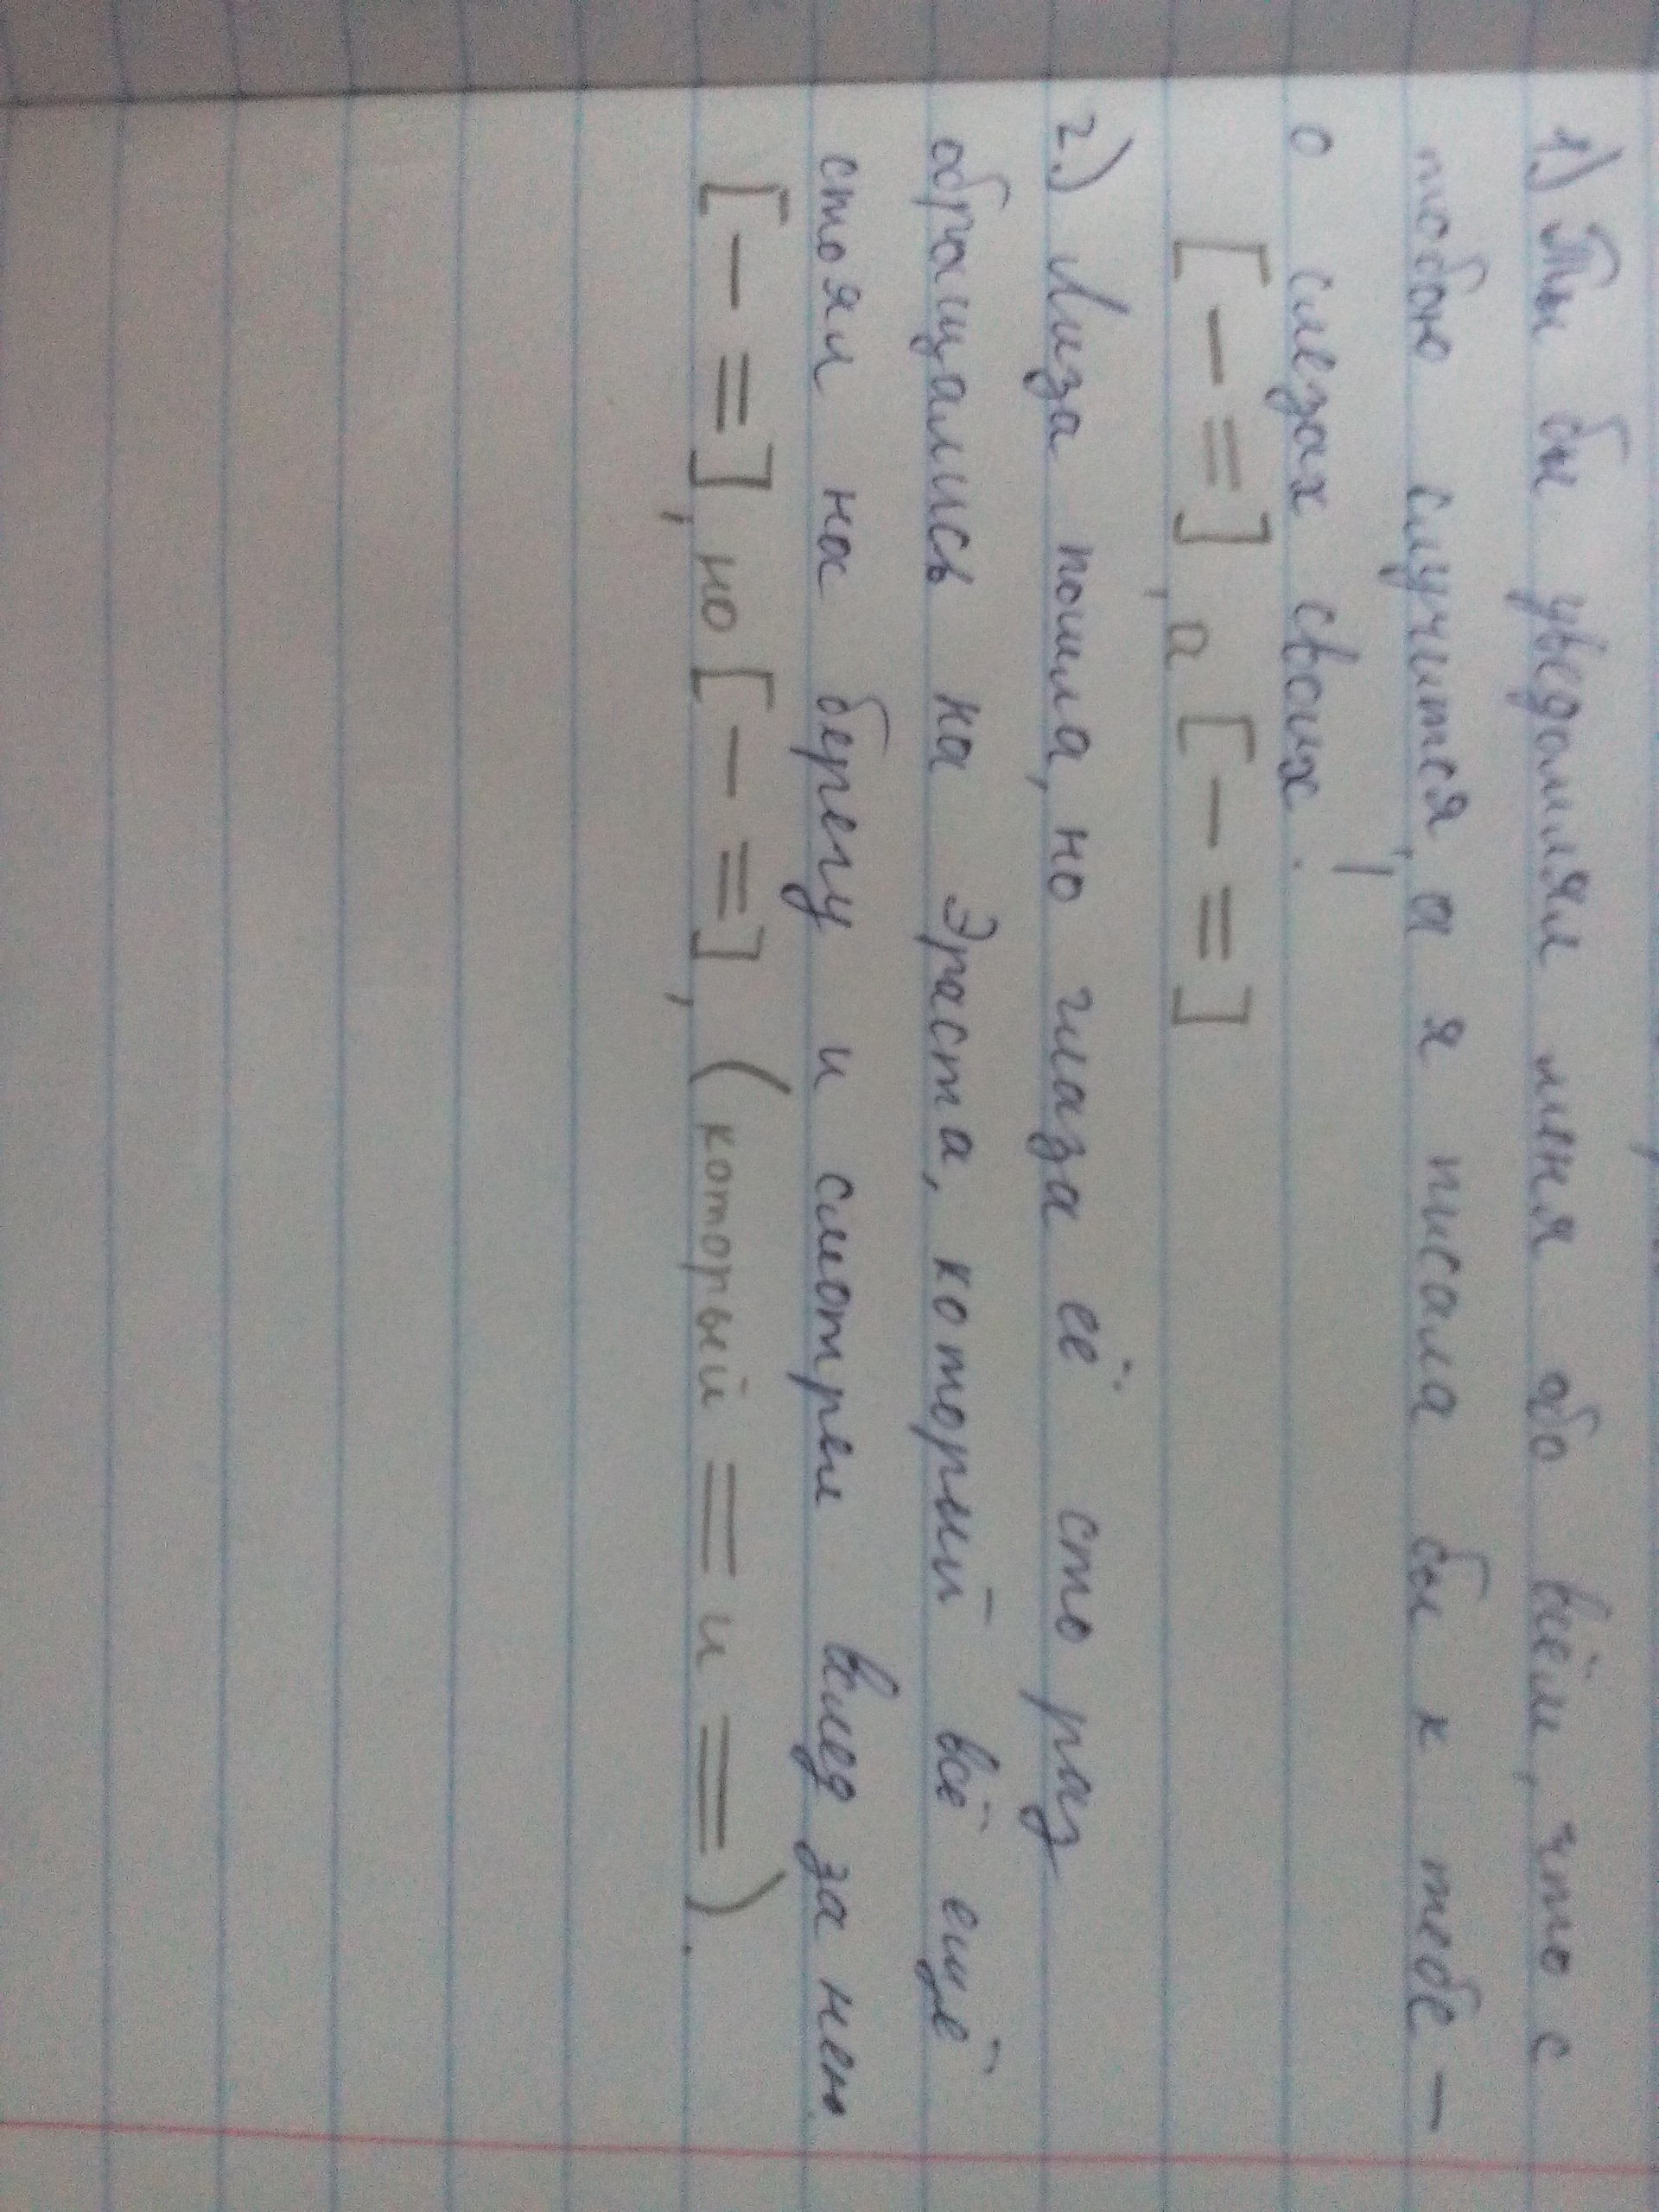 1.) Ты бы уведомлял меня обо всём, что с
тобою случится, а я писала бы к тебе –
о слезах своих.
[ – = ], а [ – = ]
2.) Лиза пошла, но глаза её сто раз
обращались на Эраста, который всё ещё
стоял на берегу и смотрел вслед за нею
[ – = ], но [ – = ], (который = и = ).